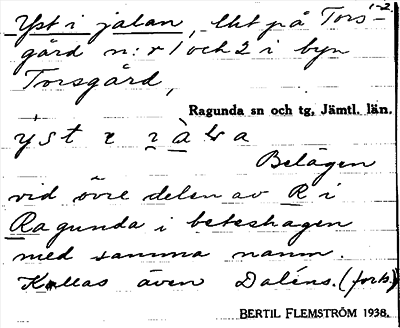 Yst i jalan, lkt på Tors- 1-2
gård n:r 1 och 2 i byn
Torsgård,
Ragunda sn och tg, Jämtl. län.
Belägen
vid övre delen av R i
Ragunda i beteshagen
med samma namn.
Kallas även Daléns. (forts.)
BERTIL FLEMSTRÖM 1938.